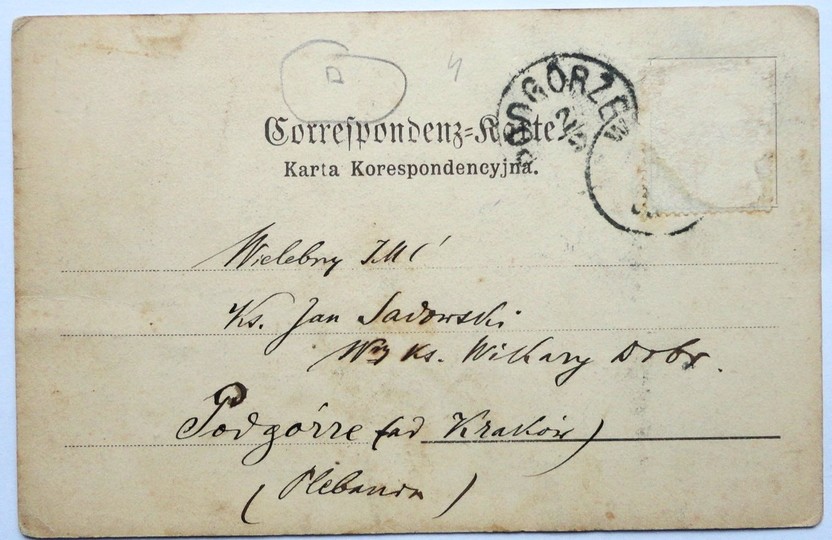 D
PODGÓRZE
Correspondenz-Karte.
Karta Korespondencyjna.
Wielebny JM
Ks. Jan Sadowski
Ks. Wikary Dobr.
Podgórze (ad Kraków)
(Plebania)